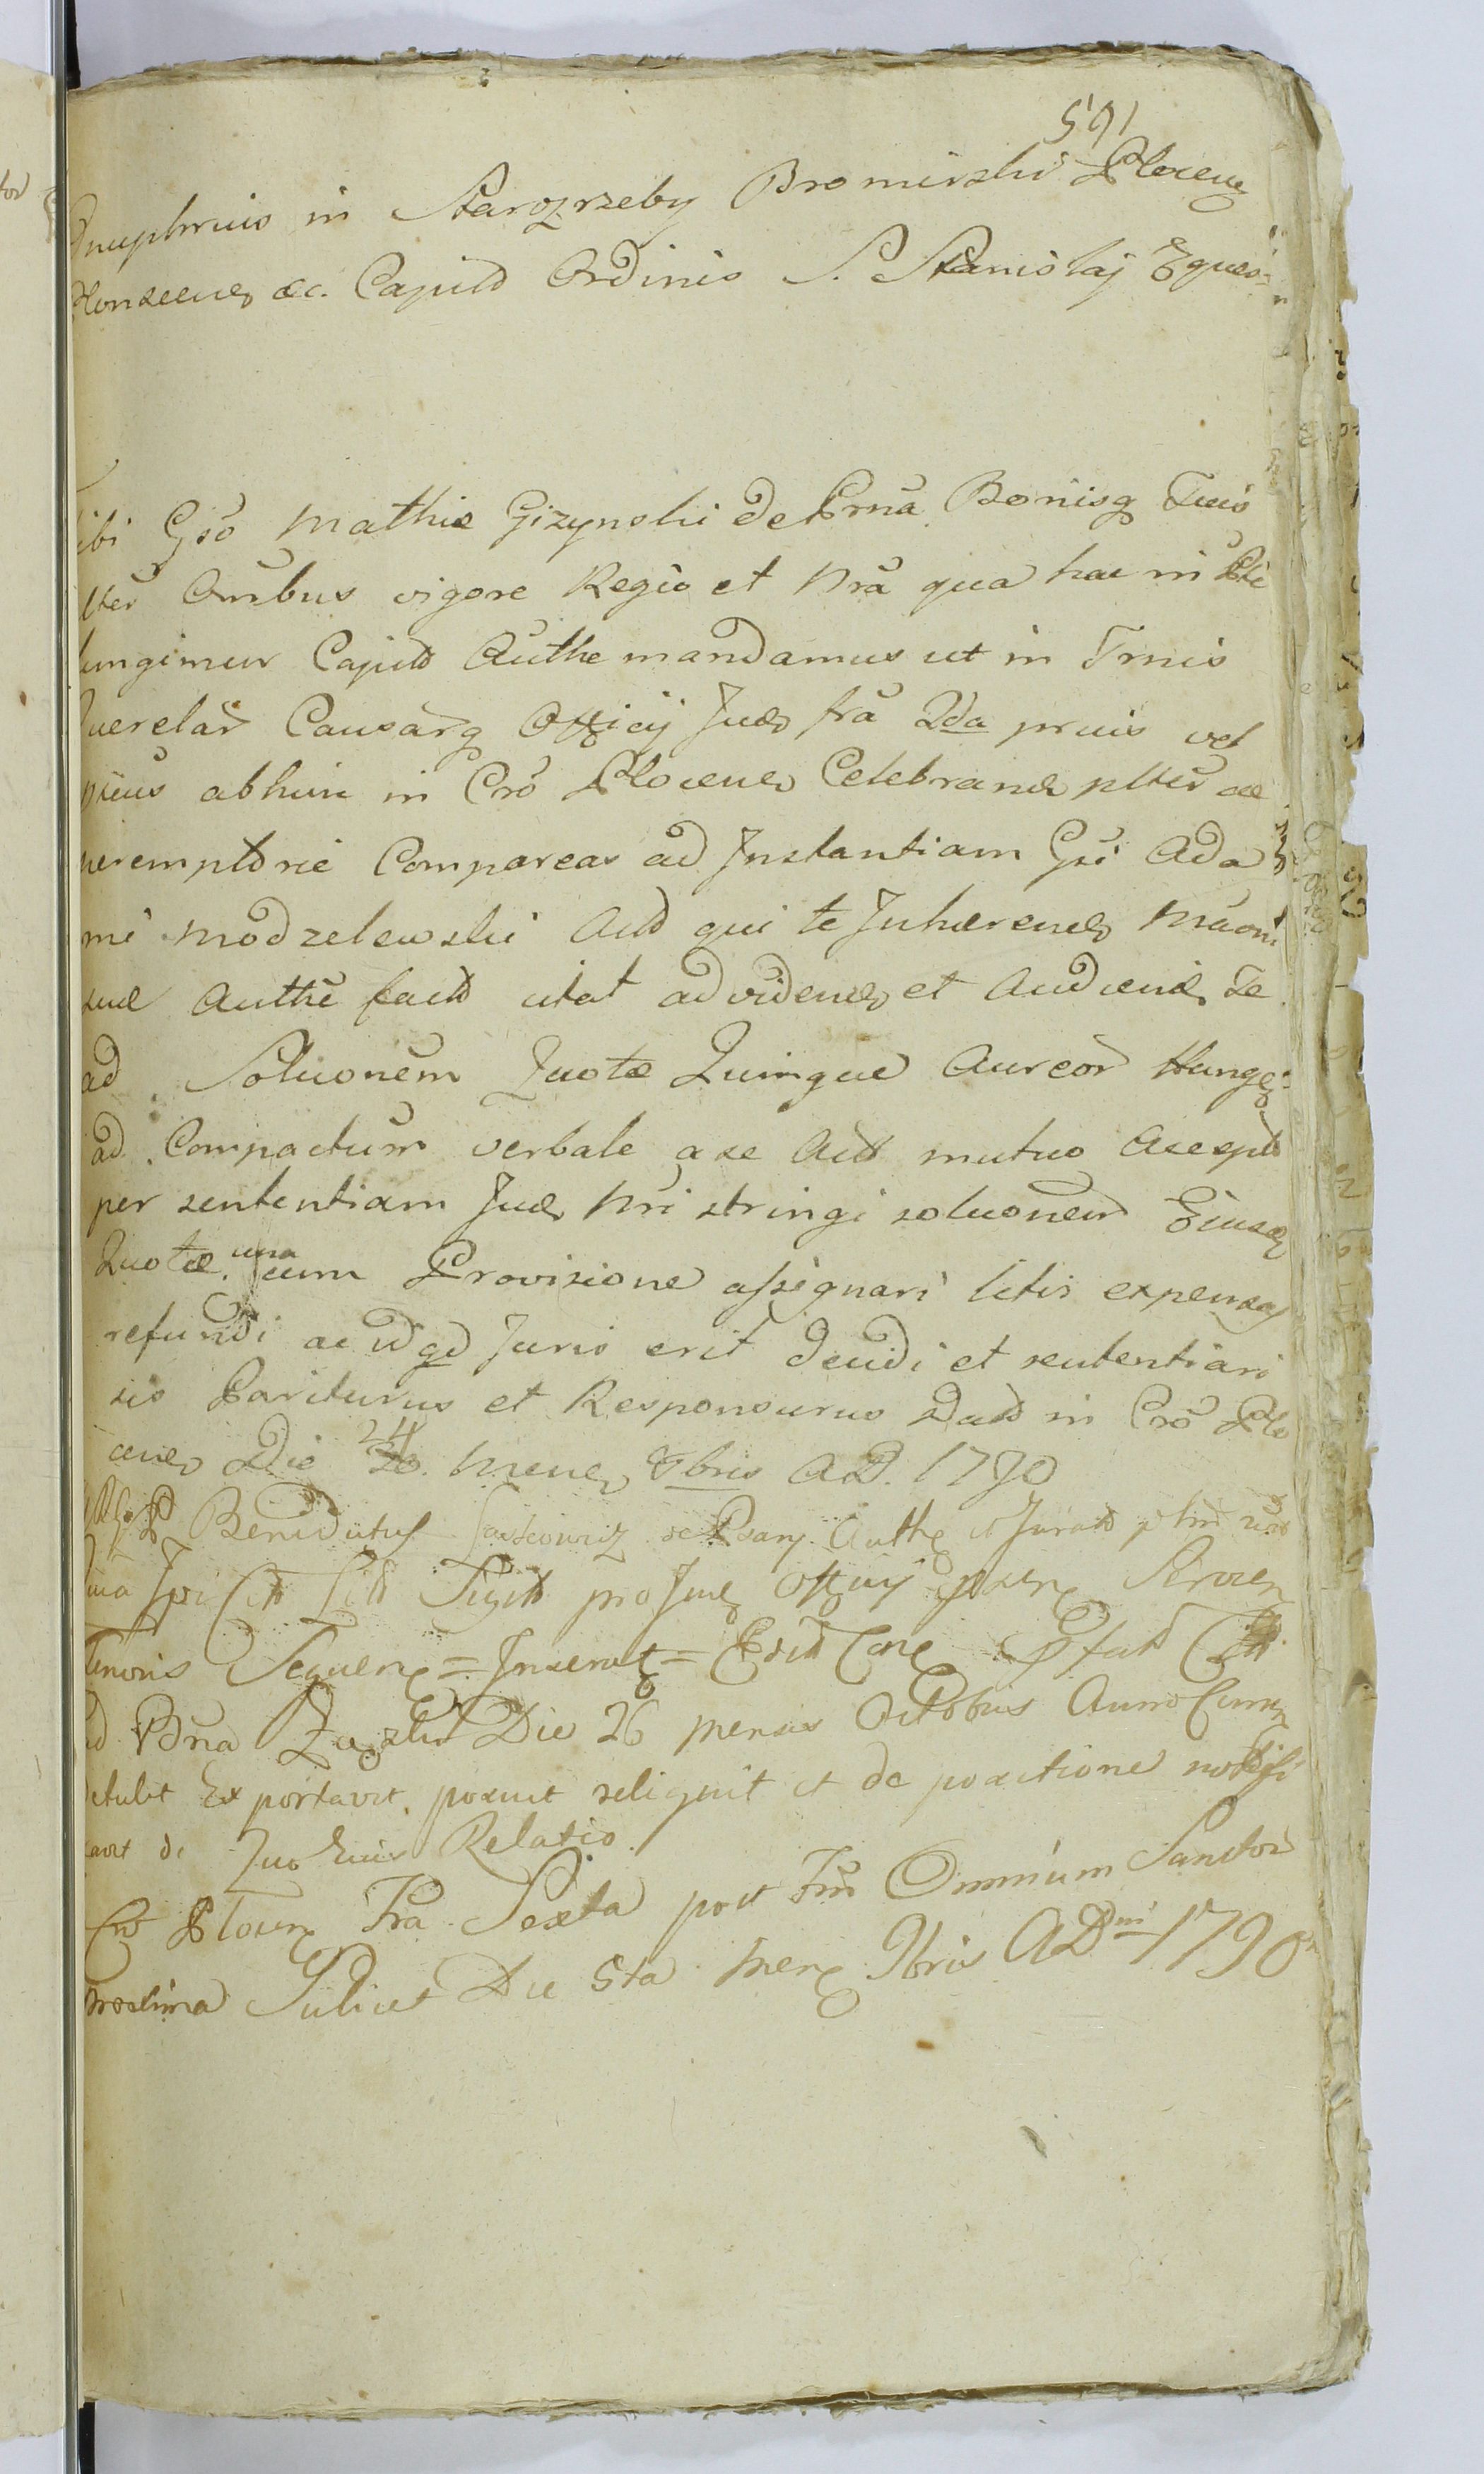 591
Onuphrius in Starozrzeby Bromirski Plocens
Plonscens &c. Capitd Ordinis S. Stanislaj Eques
tibi Gso Mathiæ Gizynski de Prna Bonisq Tuis
plter Omibus vigore Regio et Nra qua hac in Pte
fungimur Capitd Authe mandamus ut in Trnis
Querelar Causarq Officij Jud fra 2da prius vel
ptius abhinc in Cro Plocens Celebrand plter ac
peremptorie Compareas ad Jnstantiam Gsi Ada
mi Modzelewski Actd qui te Jnhærend
suæ Authe factd citat ad vidend et Audiend Te
ad Soluonem Quotæ Quinque Aureor Hung
ad Compactum verbale a se Actd mutuo Accept
per sententiam Jud Nri stringi soluonem Ejusd
Quotæ una cum Provisione assignari litis expensas
refundi ac id qd Juris erit decidi et sententiari
sis Pariturus et Responsurus Datt in Cro Plo
cens Die 24 Mens 8bris AD. 1790
Benedictus de Psary Authe et Jurato
Sigitt pro Jud Officij
Tenoris Sequens = Jnserat = Pfatt
ad Bna Die 26 mensis Octobris Anno Curren
detulit Exportavit posuit reliquit et de positione notifi
cavit de Quo huius Relatio.
Cro Plocens Fra Sexta post Fm Omnium Sanctor
proxima Scilicet Die 5ta Mens 9bris ADni 1790